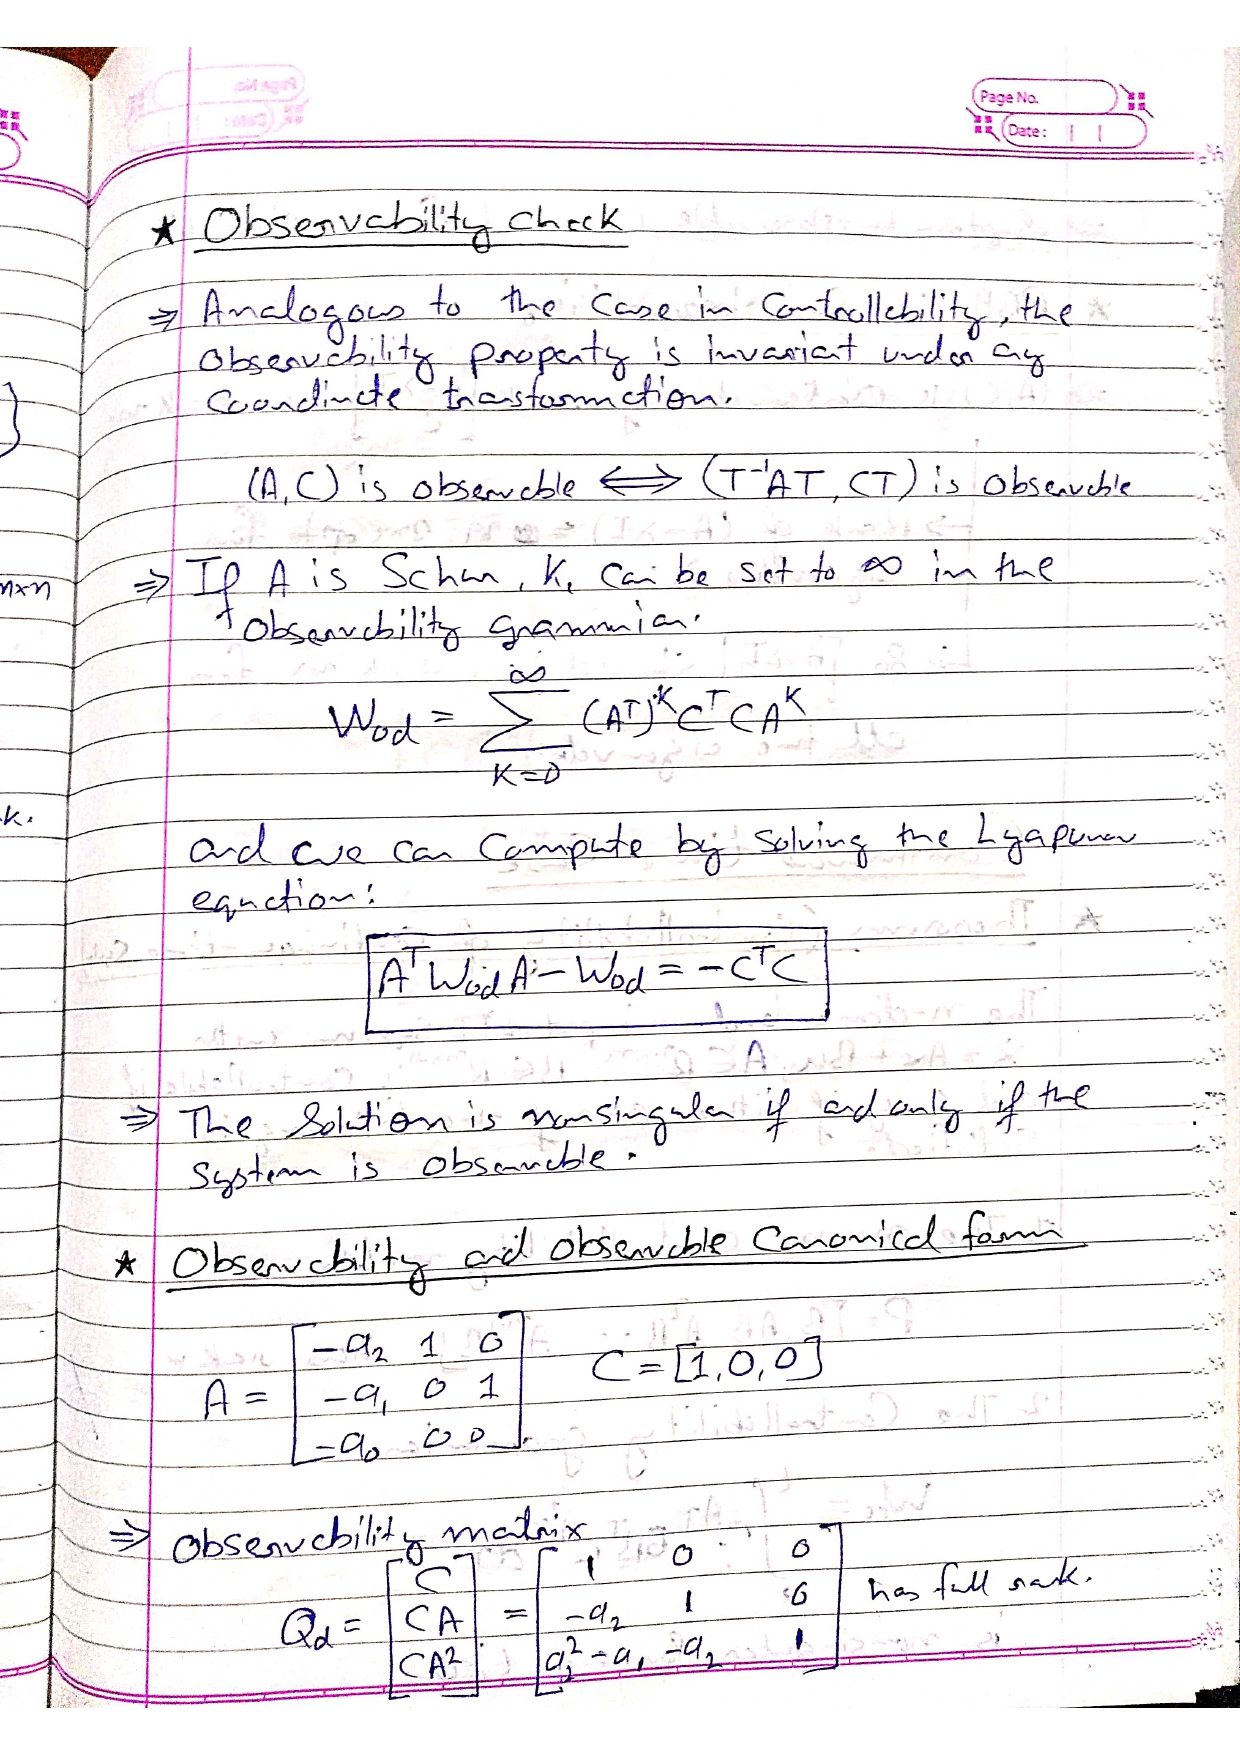 Page No.
Date:
★ Observability check
⇒ Analogous to the case in Controllebility, the
observability property is invariant under any
Coordinate transformation.
(A,C) is observable ⟺ (T⁻¹AT, CT) is observable
⇒ If A is Schur, K₁ can be set to ∞ in the
observability grammian.
W_od = ∑_{K=0}^{∞} (Aᵀ)ᴷ Cᵀ C Aᴷ
and we can compute by solving the Lyapunov
equation:
Aᵀ W_od A − W_od = −CᵀC
A
⇒ The solution is nonsingular if and only if the
system is observable.
★ Observability and observable Canonical form
A = [−a₂ 1 0; −a₁ 0 1; −a₀ 0 0] C = [1, 0, 0]
⇒ observability matrix
Q_d = [C; CA; CA²] = [1 0 0; −a₂ 1 0; a₂² − a₁ −a₂ 1] has full rank.
n×n
k.